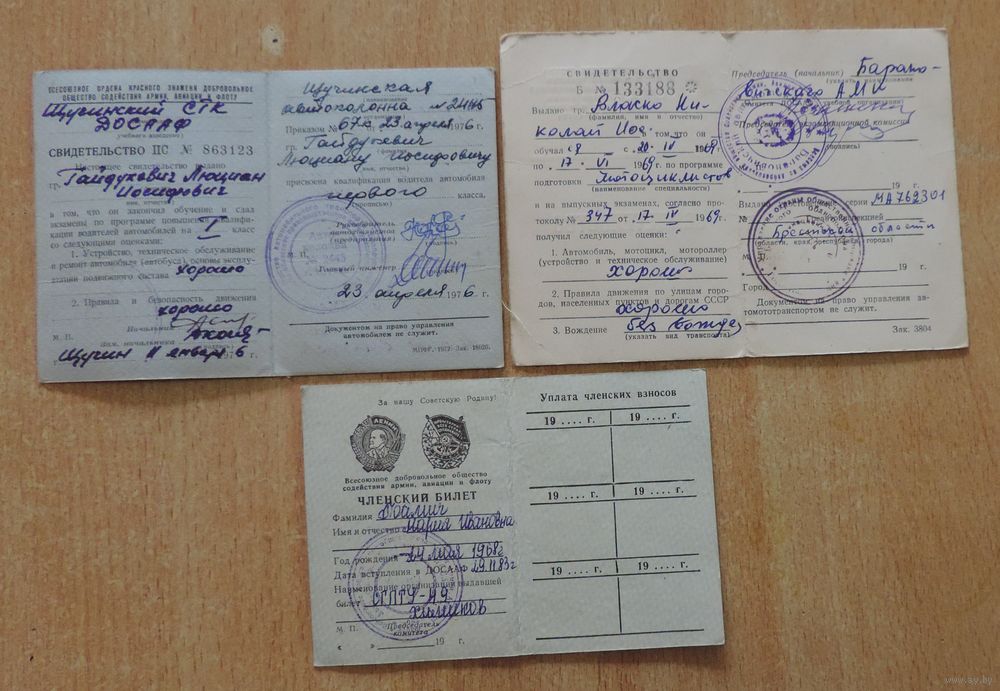 ВСЕСОЮЗНОЕ ОРДЕНА КРАСНОГО ЗНАМЕНИ ДОБРОВОЛЬНОЕ
ОБЩЕСТВО СОДЕЙСТВИЯ АРМИИ, АВИАЦИИ И ФЛОТУ
Щучинский СТК
ДОСААФ
учебного
СВИДЕТЕЛЬСТВО ПС № 863123
Настоящее свидетельство выдано
гр. Гайдукевич Люциан
Иосифович
имя, отчество
в том, что он закончил обучение и сдал
экзамены по программе повышения квалифи-
кации водителей автомобилей на I класс
со следующими оценками:
1. Устройство, техническое обслуживание
и ремонт автомобиля (автобуса) основы эксплу-
атации подвижного состава хорошо
2. Правила и безопасность движения
хорошо
Начальник
М. П. Зам. начальника
Щучин 11 января 6
Щучинская
автоколонна №
Приказом № 67 к 23 апреля 1976 г.
гр. Гайдукевич
Люциану Иосифовичу
имя, отчество
присвоена квалификация водителя автомобиля
первого класса.
(прописью)
Руководитель
автохозяйства
(предприятия)
Главный инженер
23 апреля 1976 г.
Документом на право управления
автомобилем не служит.
СВИДЕТЕЛЬСТВО
Б № 133188
Выдано гр. Власко Ни-
(фамилия, имя и отчество)
колай Иос. в том что он
обучался с 20 IV 1969
по 17 VI 1969 г. по программе
подготовки мотоциклистов
(наименование специальности)
и на выпускных экзаменах, согласно про-
токолу № 347 от 17 IV 1969 г.
получил следующие оценки:
1. Автомобиль, мотоцикл, мотороллер
(устройство и техническое обслуживание)
хорошо
2. Правила движения по улицам горо-
дов, населенных пунктов и дорогам СССР
хорошо
3. Вождение без вожде
(указать вид транспорта)
Председатель (начальник) Барано-
вичского АМК
Председатель экзаменационной комиссии
(подпись)
19 г.
Выдано МА762301
Брестской области
(области, края, республики, города)
19 г.
Город
Документом на право управления ав-
томототранспортом не служит.
Зак. 3804
За нашу Советскую Родину!
Всесоюзное добровольное общество
содействия армии, авиации и флоту
ЧЛЕНСКИЙ БИЛЕТ
Фамилия
Имя и отчество Мария Ивановна
Год рождения 24 мая 1968г
Дата вступления в ДОСААФ 29.11.83г
Наименование организации выдавшей
билет СГПТУ-
химиков
М. П. Председатель
комитета
« » 19 г.
Уплата членских взносов
19 .... г. 19 .... г.
19 .... г. 19 .... г.
19 .... г. 19 .... г.
www.ay.by